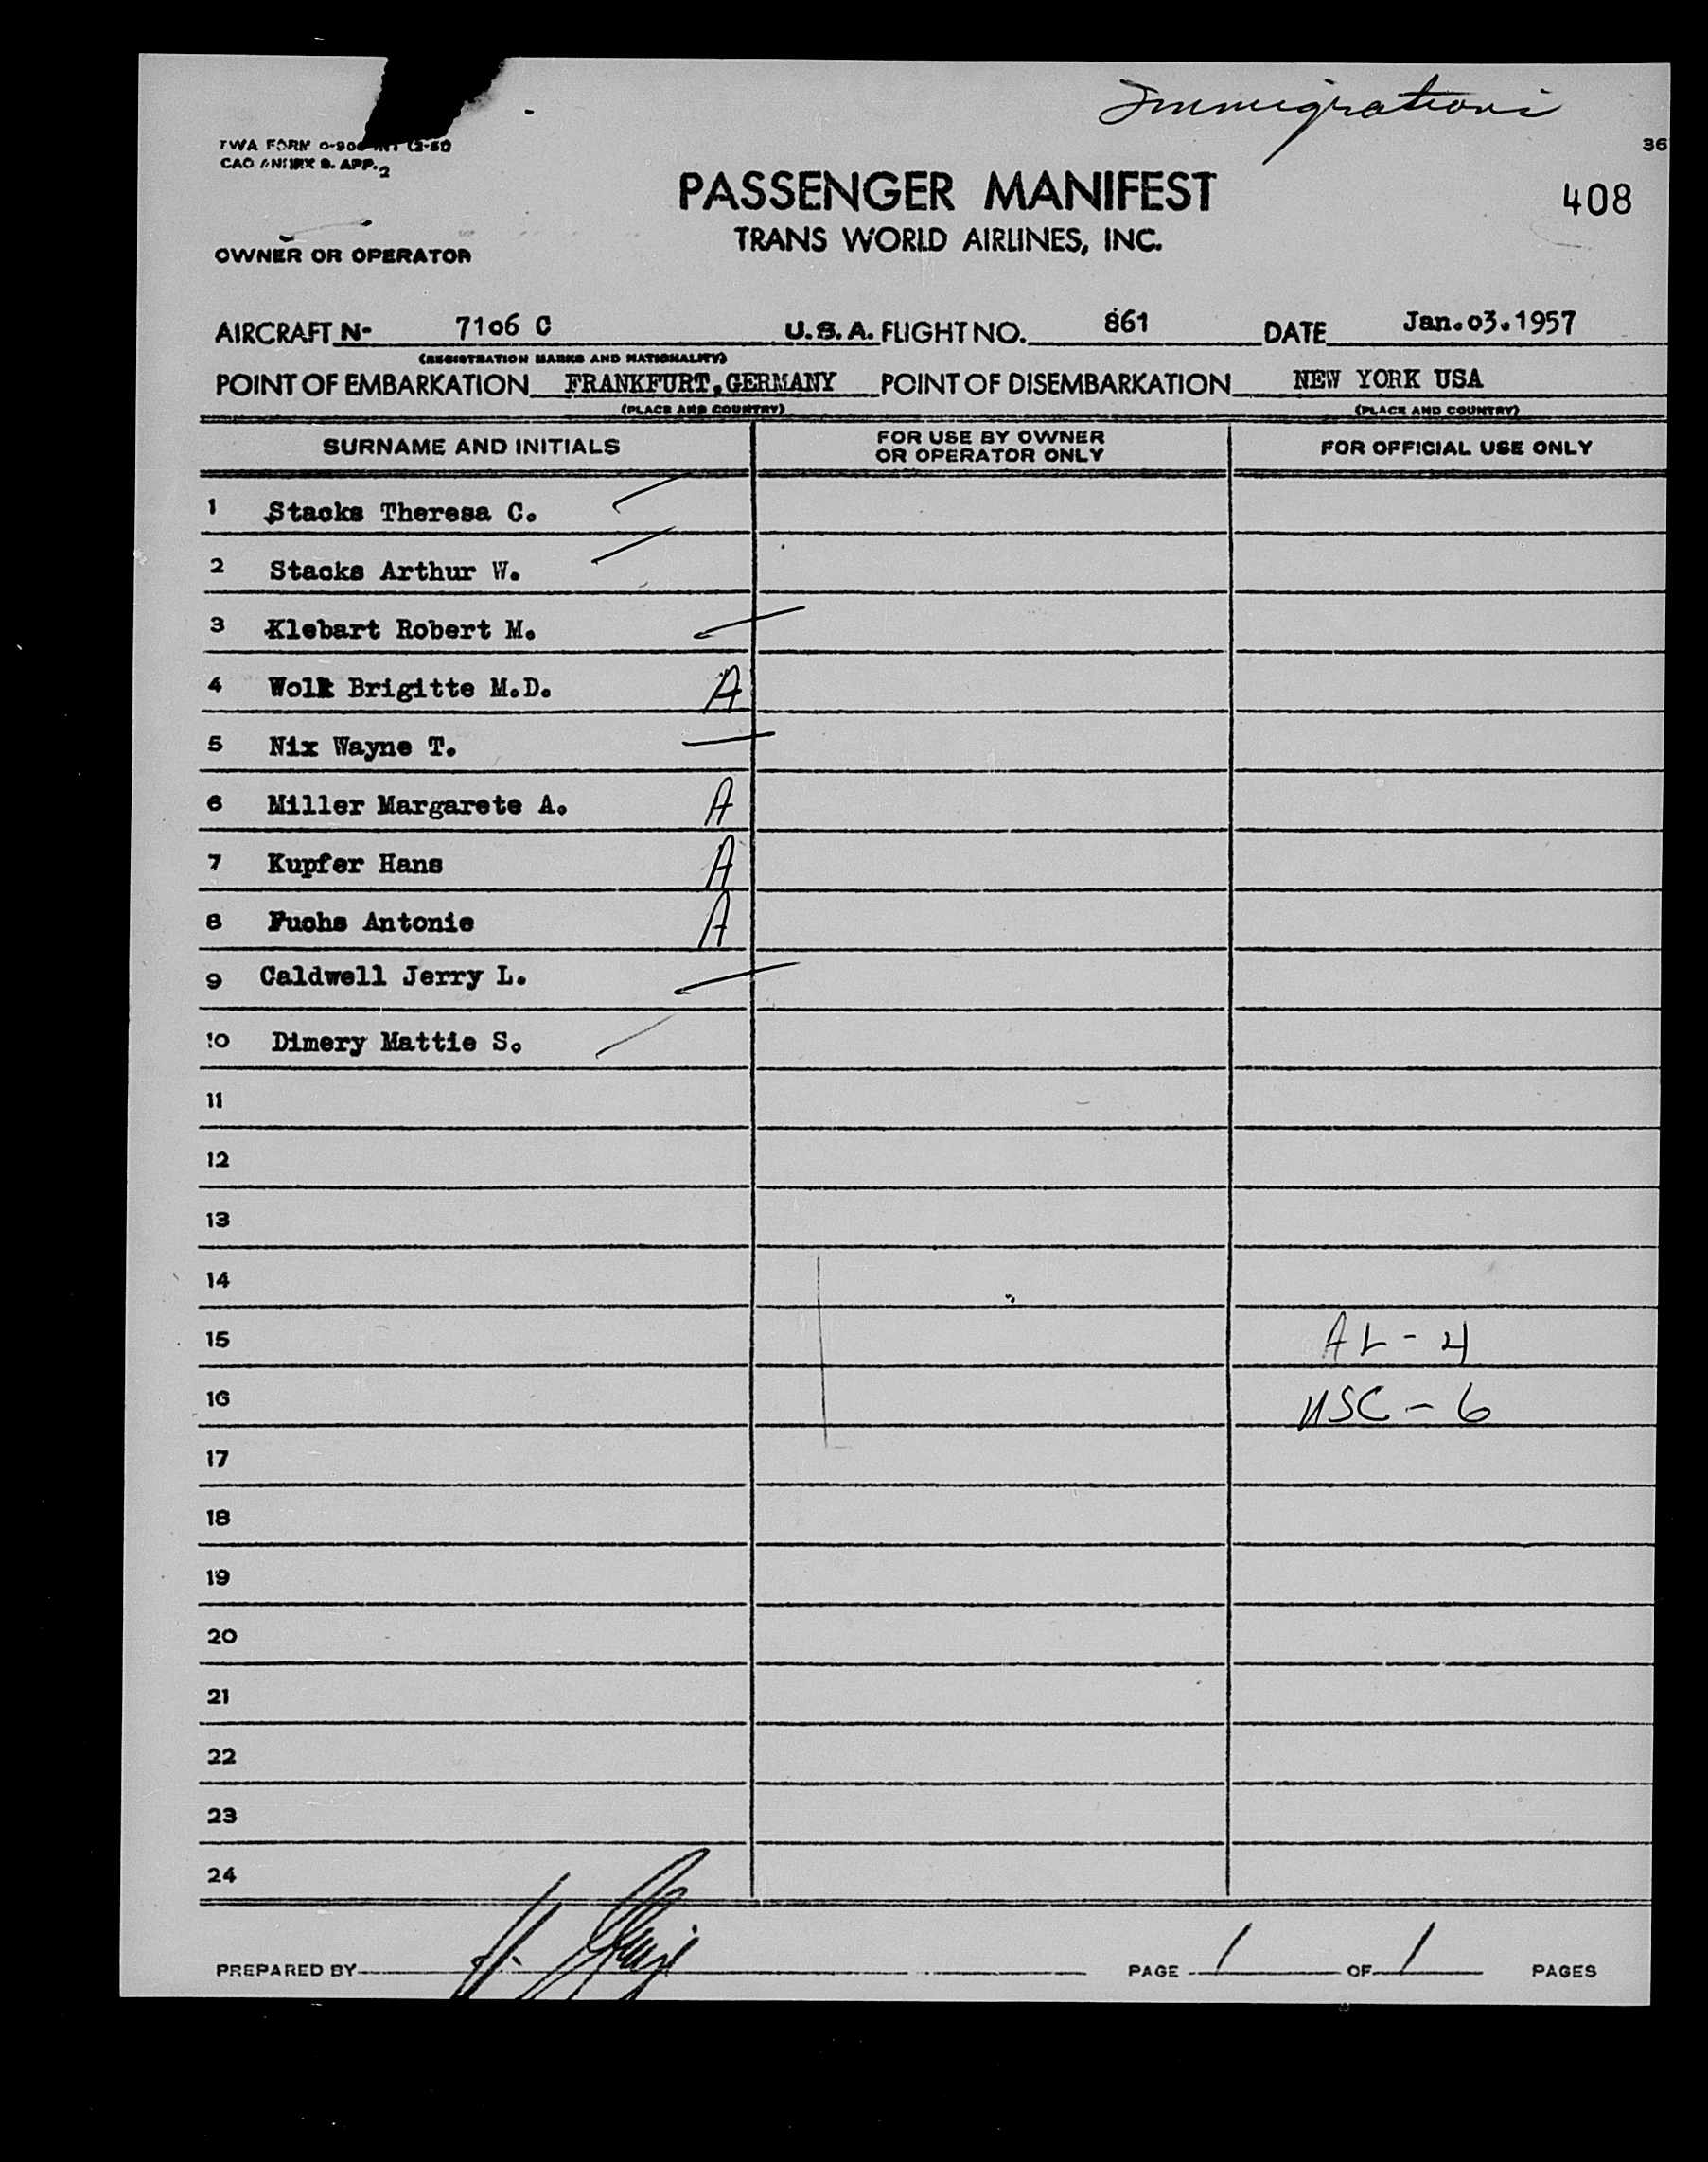 Immigrations
36
TWA FORM
CAO ANNEX 9. APP. 2
PASSENGER MANIFEST
408
TRANS WORLD AIRLINES, INC.
OWNER OR OPERATOR
AIRCRAFT N- 7106 C U.S.A. FLIGHT NO. 861 DATE Jan.03.1957
(REGISTRATION MARKS AND NATIONALITY)
POINT OF EMBARKATION FRANKFURT,GERMANY POINT OF DISEMBARKATION NEW YORK USA
(PLACE AND COUNTRY) (PLACE AND COUNTRY)
SURNAME AND INITIALS FOR USE BY OWNER OR OPERATOR ONLY FOR OFFICIAL USE ONLY
1 Stacks Theresa C.
2 Stacks Arthur W.
3 Klebart Robert M.
4 Wolk Brigitte M.D. A
5 Nix Wayne T.
6 Miller Margarete A. A
7 Kupfer Hans A
8 Fuchs Antonie A
9 Caldwell Jerry L.
10 Dimery Mattie S.
11
12
13
14
15 AL - 4
16 USC - 6
17
18
19
20
21
22
23
24
PREPARED BY PAGE 1 OF 1 PAGES